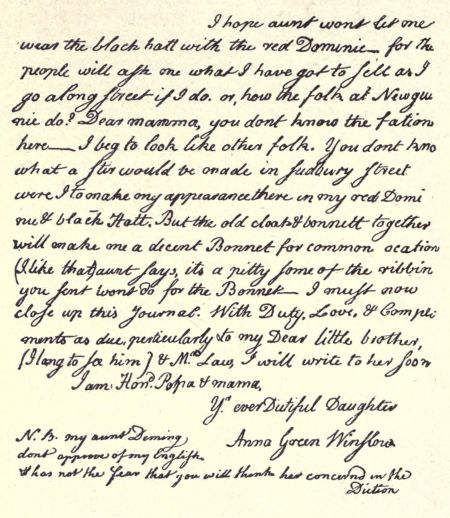 I hope aunt wont let me
wear the black hatt with the red Dominie — for the
people will ask me what I have got to sell as I
go along street if I do. or, how the folk at Newgui
nie do? Dear mamma, you dont know the fation
here — I beg to look like other folk. You dont kno
what a stir would be made in sudbury street
were I to make my appearance there in my red Domi
nie & black Hatt. But the old cloak & bonnett together
will make me a decent Bonnet for common ocation
(I like that) aunt says, its a pitty some of the ribbin
you sent wont do for the Bonnet — I must now
close up this Journal. With Duty, Love, & Compli
ments as due, perticularly to my Dear little brother,
(I long to see him) & Mrs Law, I will write to her soon
I am Hond Papa & mama,
Yr ever Dutiful Daughter
Anna Green Winslow.
N.B. my aunt Deming
dont approve of my English.
& has not the fear that you will think her concernd in the
Diction